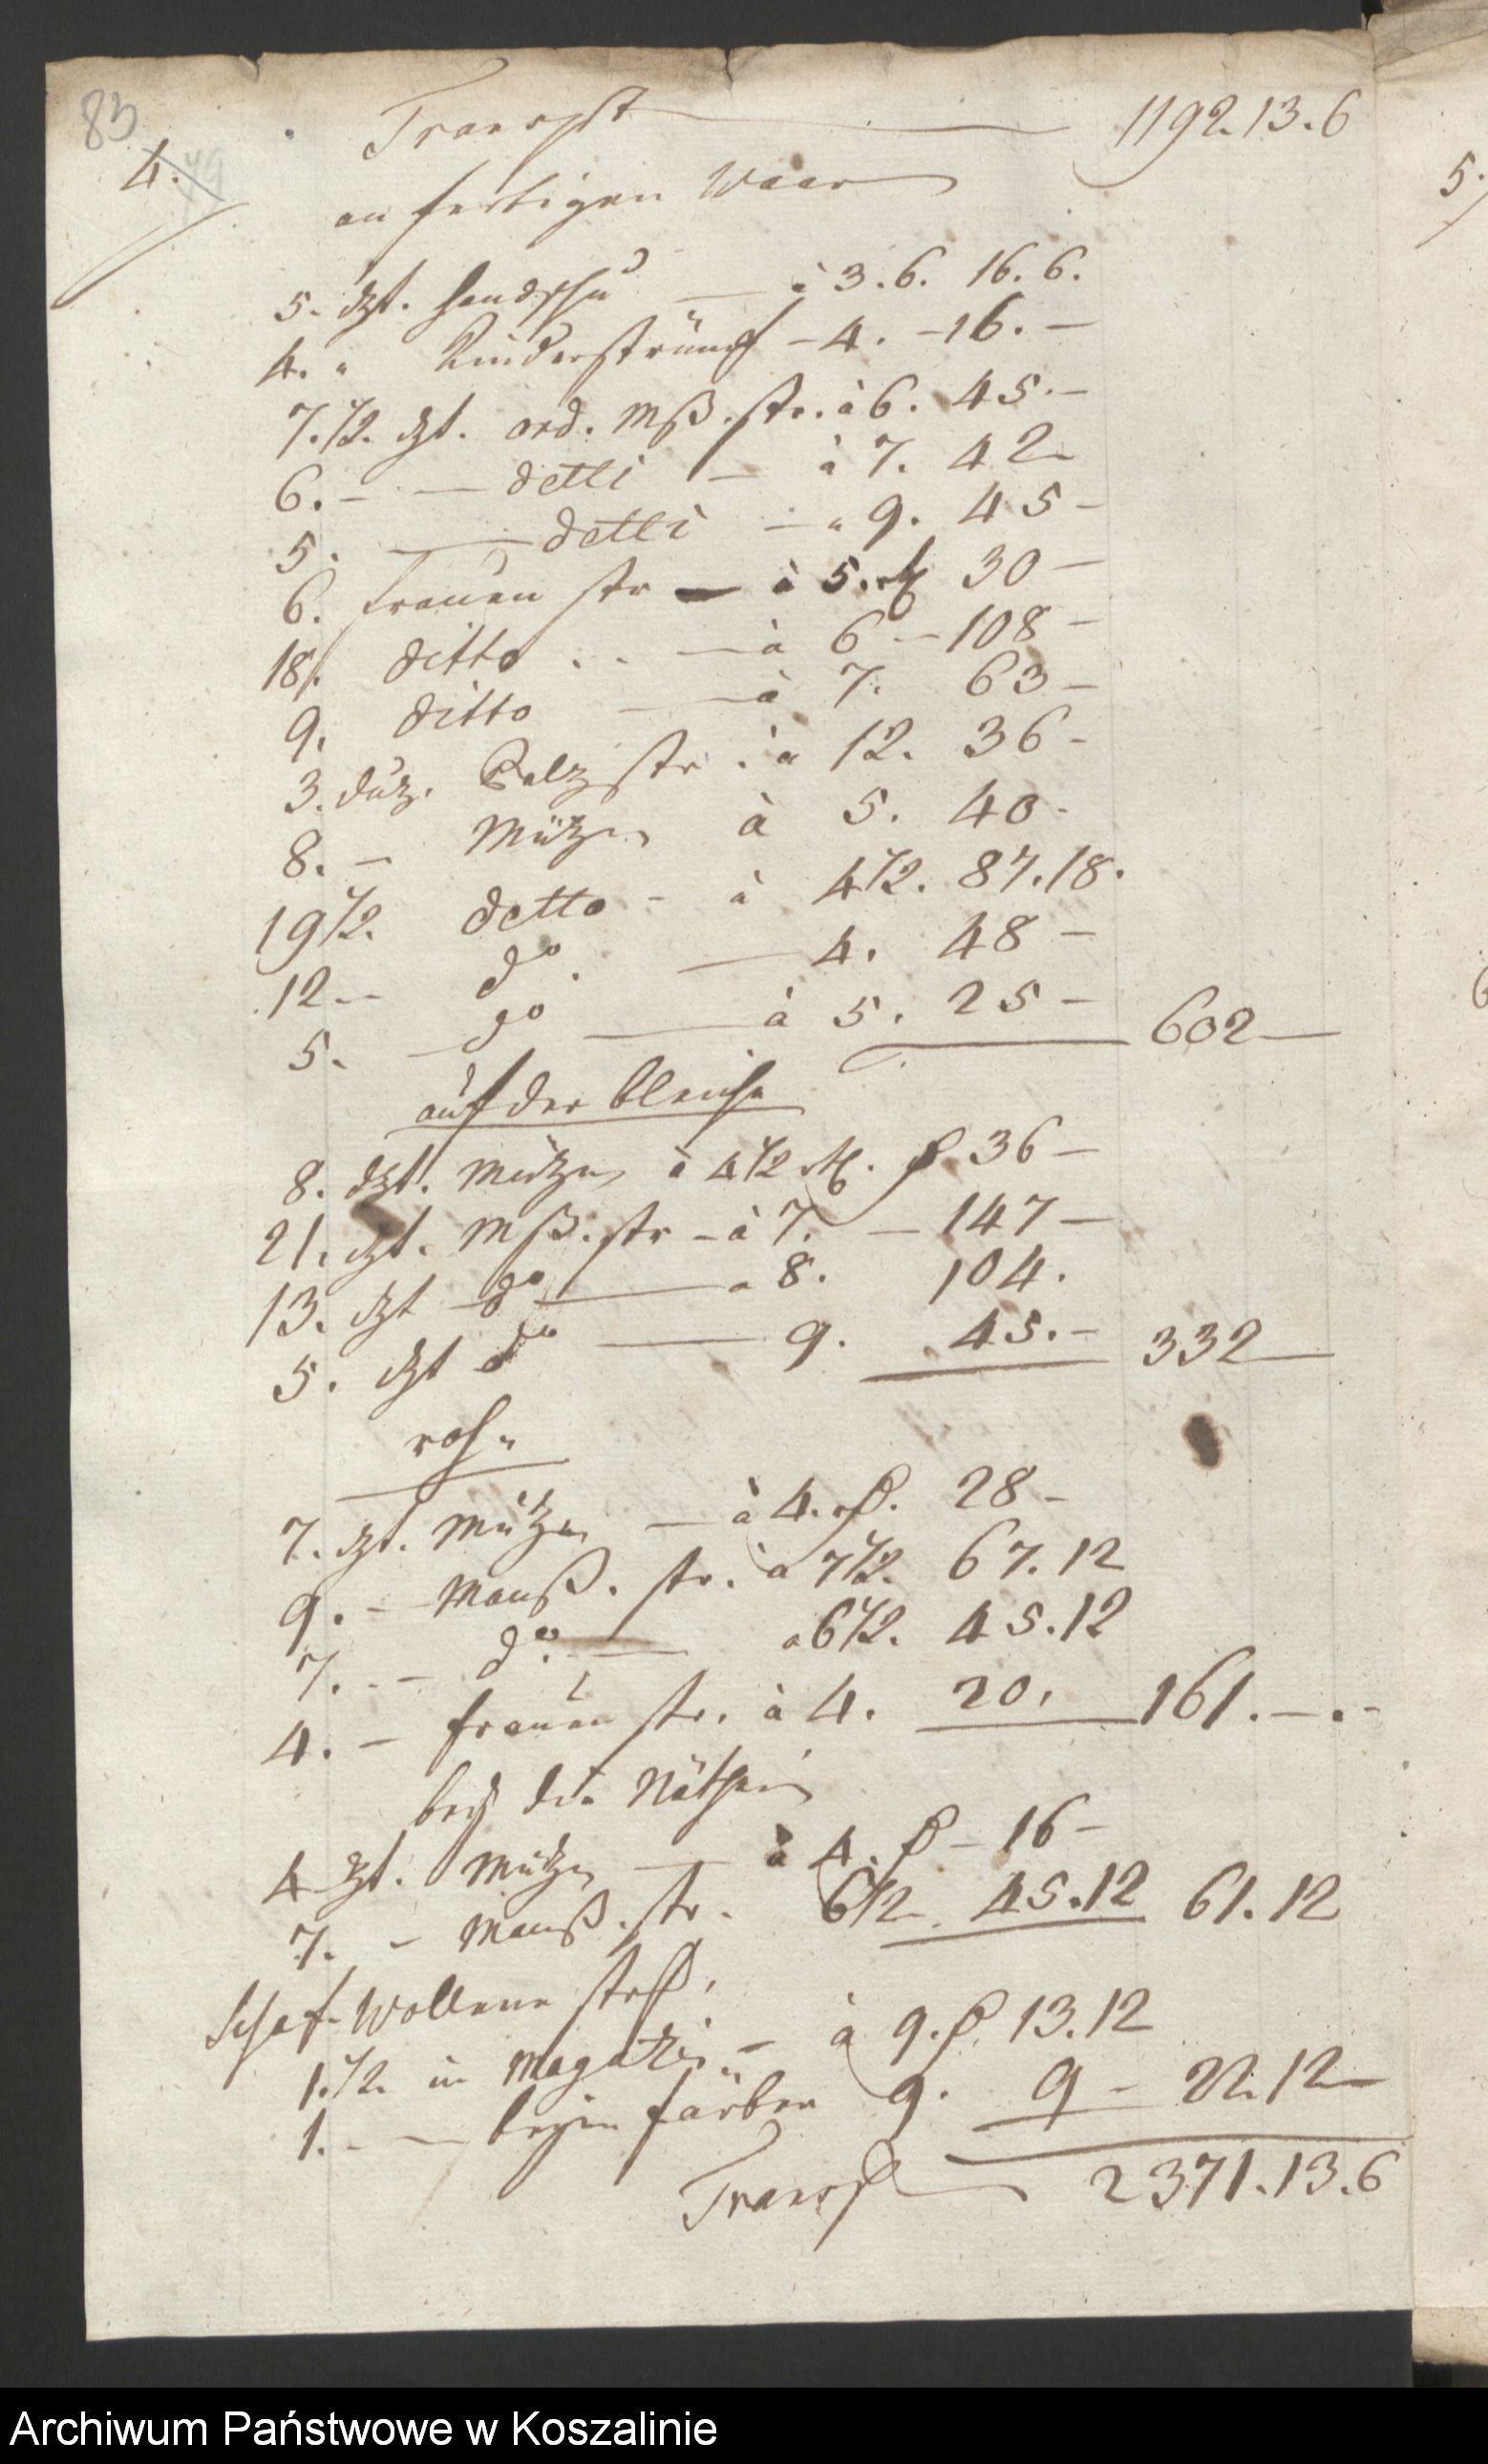 83
4. 79
Transpt 1192.13.6
an fertigen Waar
5. dzt. Handschu — à 3.6. 16.6.
4. " Kinderstrümpf — 4. — 16. —
7.1/2. dzt. ord. Mß. str. à 6. 45. —
6. — — detti — à 7. 42 —
5. — detti — " 9. 45 —
6. frauen str — à 5. rh 30 —
18. ditto . . — à 6 — 108 —
9. ditto — à 7. 63 —
3. duz. Palz str . à 12. 36 —
8. — Mützen à 5. 40 -
19 1/2. detto - à 4 1/2. 87.18.
12 — do. — 4. 48 —
5. — do — à 5. 25 — 602 —
auf der bleiche
8. dzt. Mützen à 4 1/2 rh. 36 —
21. dzt. Mß. str — à 7. — 147 —
13. dzt do — a 8. 104.
5. dzt do — 9. 45. — 332 —
rohe
7. dzt. Mützen — à 4. 28 —
9. — Manß. str. à 7 1/2. 67.12
7. — do. — a 6 1/2. 45.12
4. — frauen str. à 4. 20. 161. — . —
bey die Näthrin
4 dzt. Mützen — à 4. — 16 —
7. — Manß. str. 6 1/2 45.12 61.12
Schaf-Wollene
1.1/2. in Magatzin — à 9. 13.12
1. — — beym färber 9. 9 — 22.12 —
Transpt 2371.13.6
5.
6
Archiwum Państwowe w Koszalinie